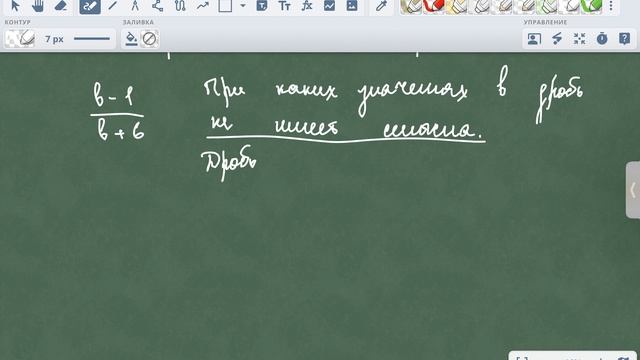 КОНТУР
ЗАЛИВКА
УПРАВЛЕНИЕ
7 px
в - 1
в + 6
При каких значениях в дробь
не имеет смысла.
Дробь